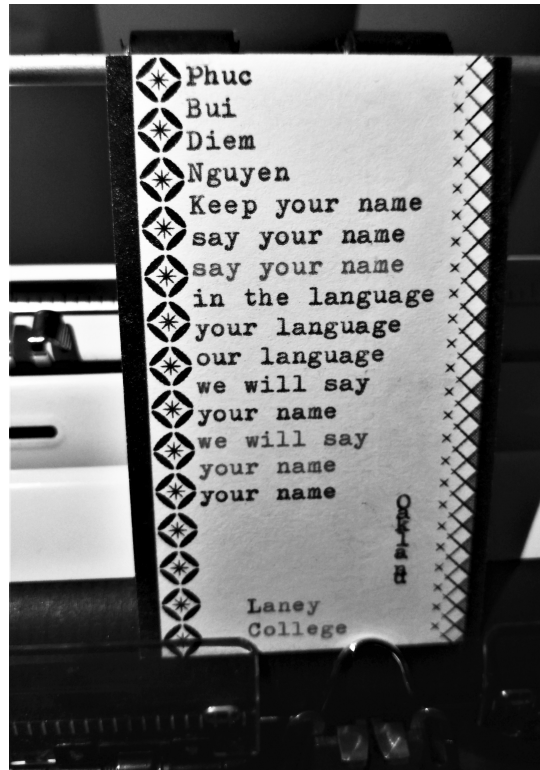 Phuc
Bui
Diem
Nguyen
Keep your name
say your name
say your name
in the language
your language
our language
we will say
your name
we will say
your name
your name
Oakland
Laney
College